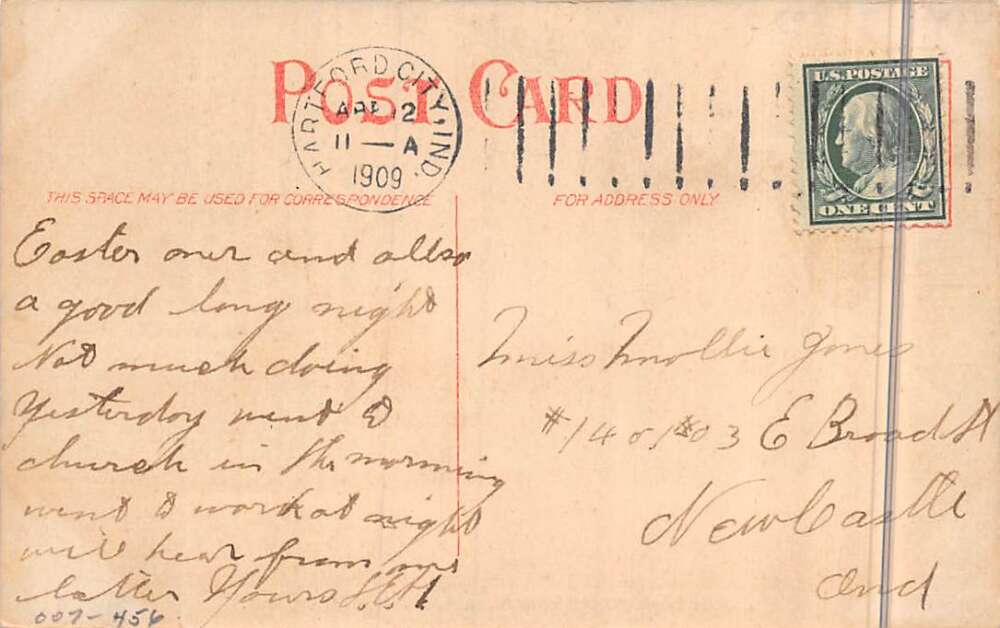 POST CARD
HARTFORD CITY, IND.
APR 12
11—A
1909
U.S. POSTAGE
ONE CENT
THIS SPACE MAY BE USED FOR CORRESPONDENCE
FOR ADDRESS ONLY
Easter over and allso
a good long night
Not much doing
Yesterday went to
church in the morning
went to work at night
will hear from me
latter Yours
Miss Mollie Jones
E Broad St
New Castle
Ind
007-456